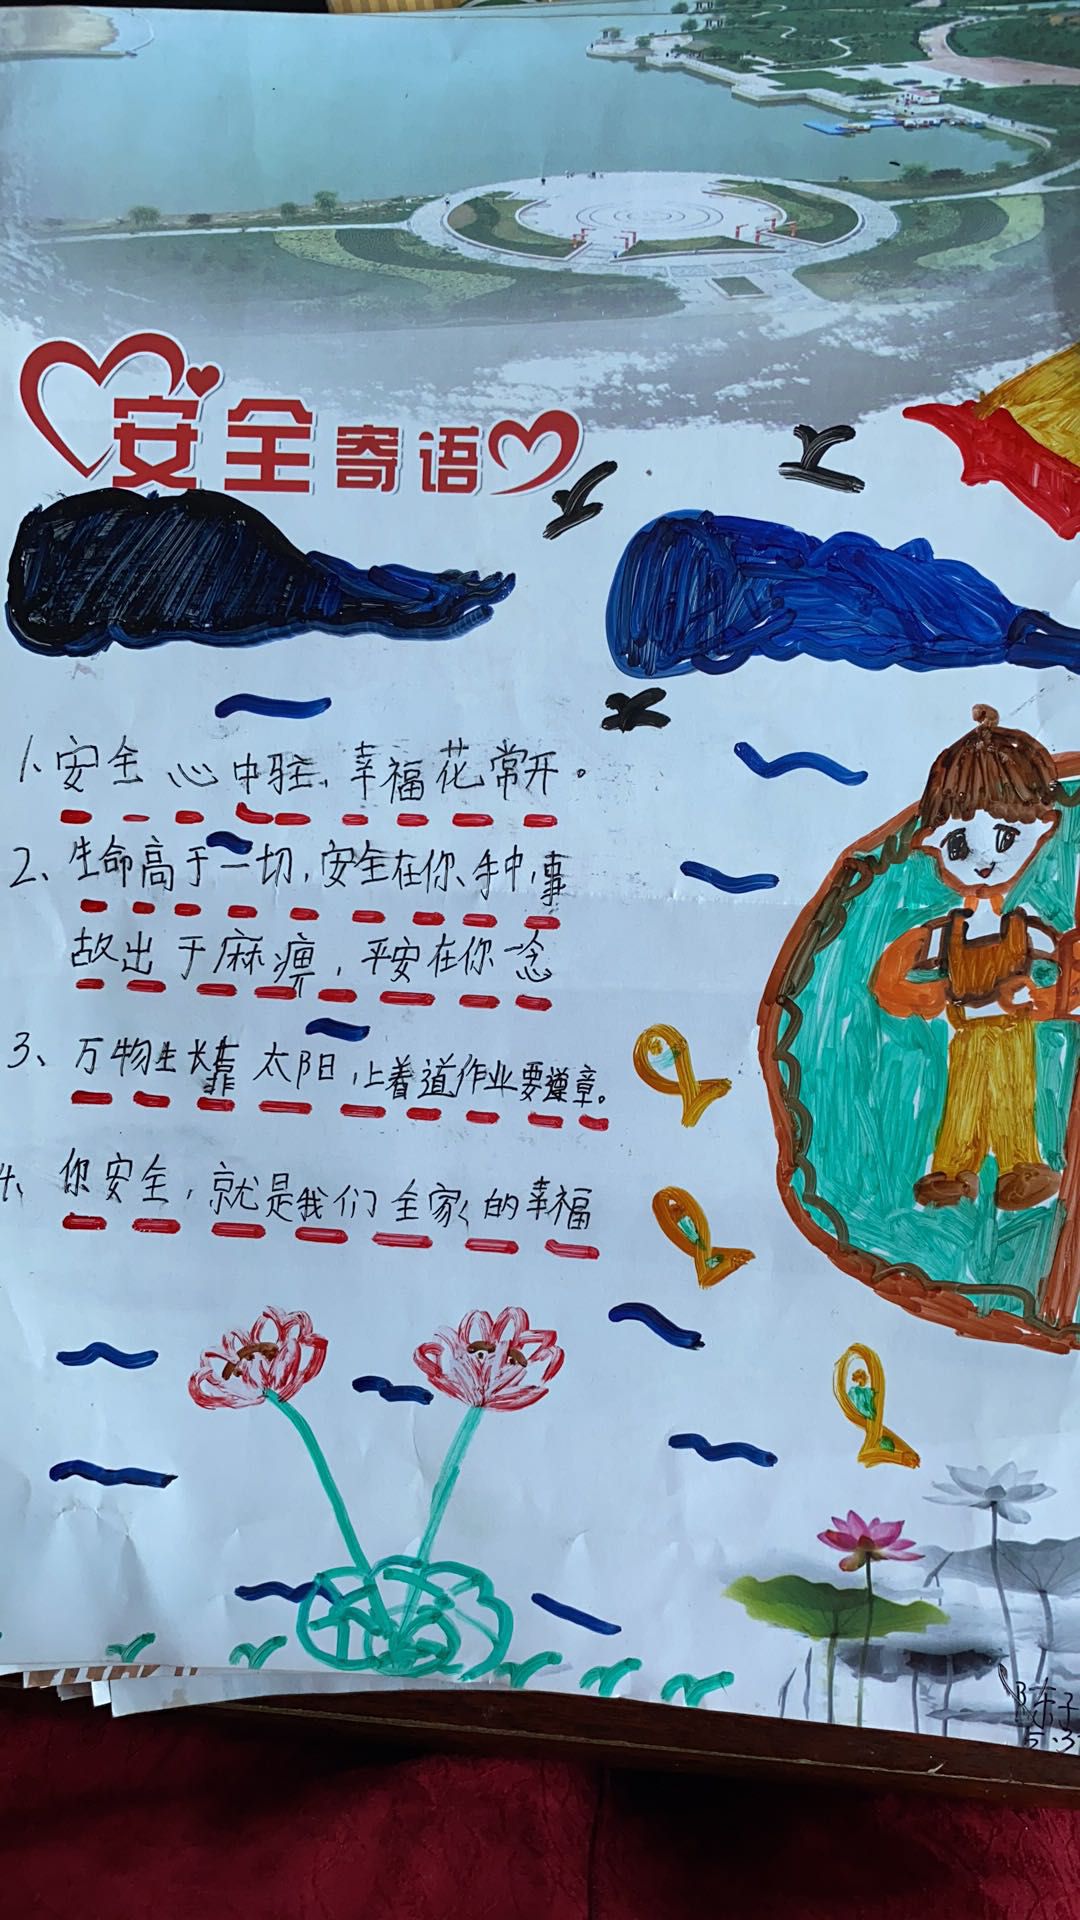 安全寄语
1、安全心中驻，幸福花常开。
2、生命高于一切，安全在你手中，事
故出于麻痹，平安在你一念
3、万物生长靠太阳，上着道作业要遵章。
4、你安全，就是我们全家的幸福
陈子